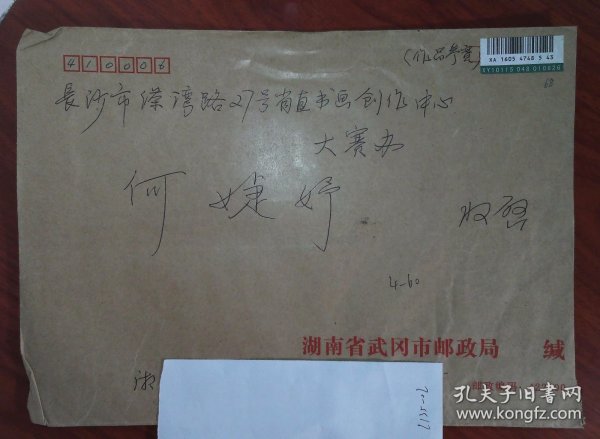 410006
(作品参赛)
XA 1605 4748 5 43
长沙市溁湾路27号省直书画创作中心
大赛办
何婕妤 收启
4-60
湖南省武冈市邮政局 缄
湘
孔夫子旧书网
www.kongfz.com